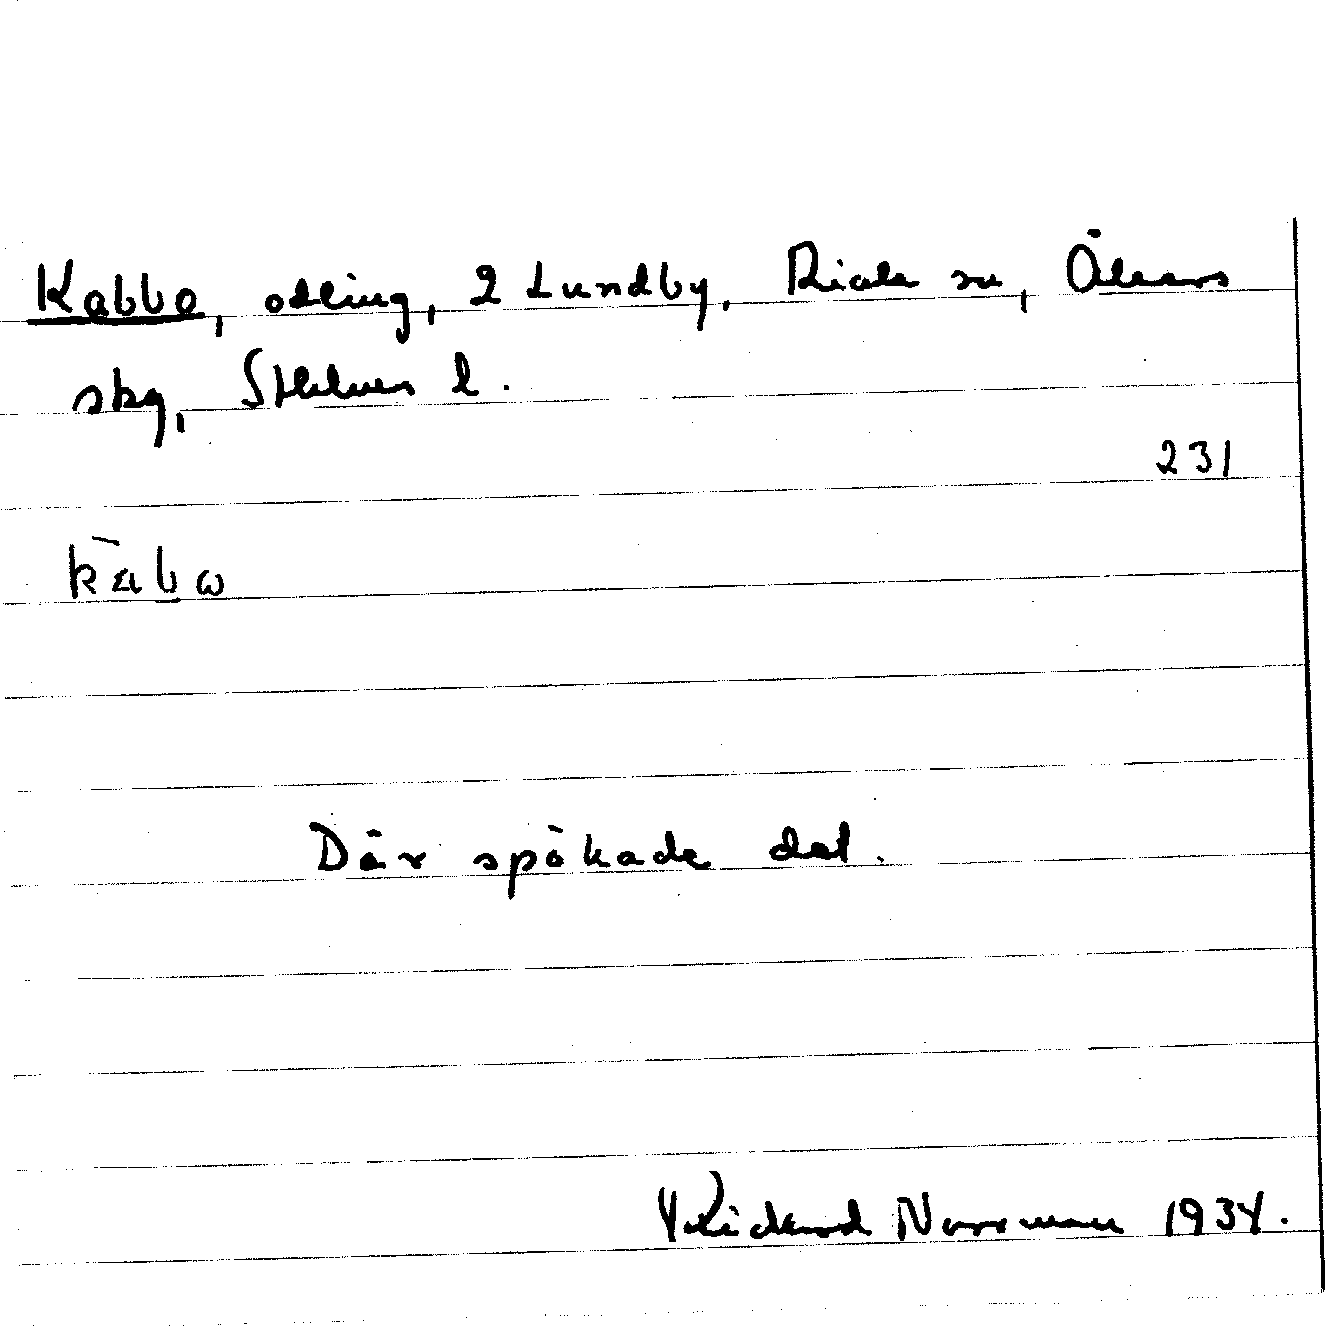 Kabbo, odling, 2 Lundby, Riala sn, Åkers
skg, Sthlms l.
231
kàbω
Där spökade det.
Rickard Norrman 1934.